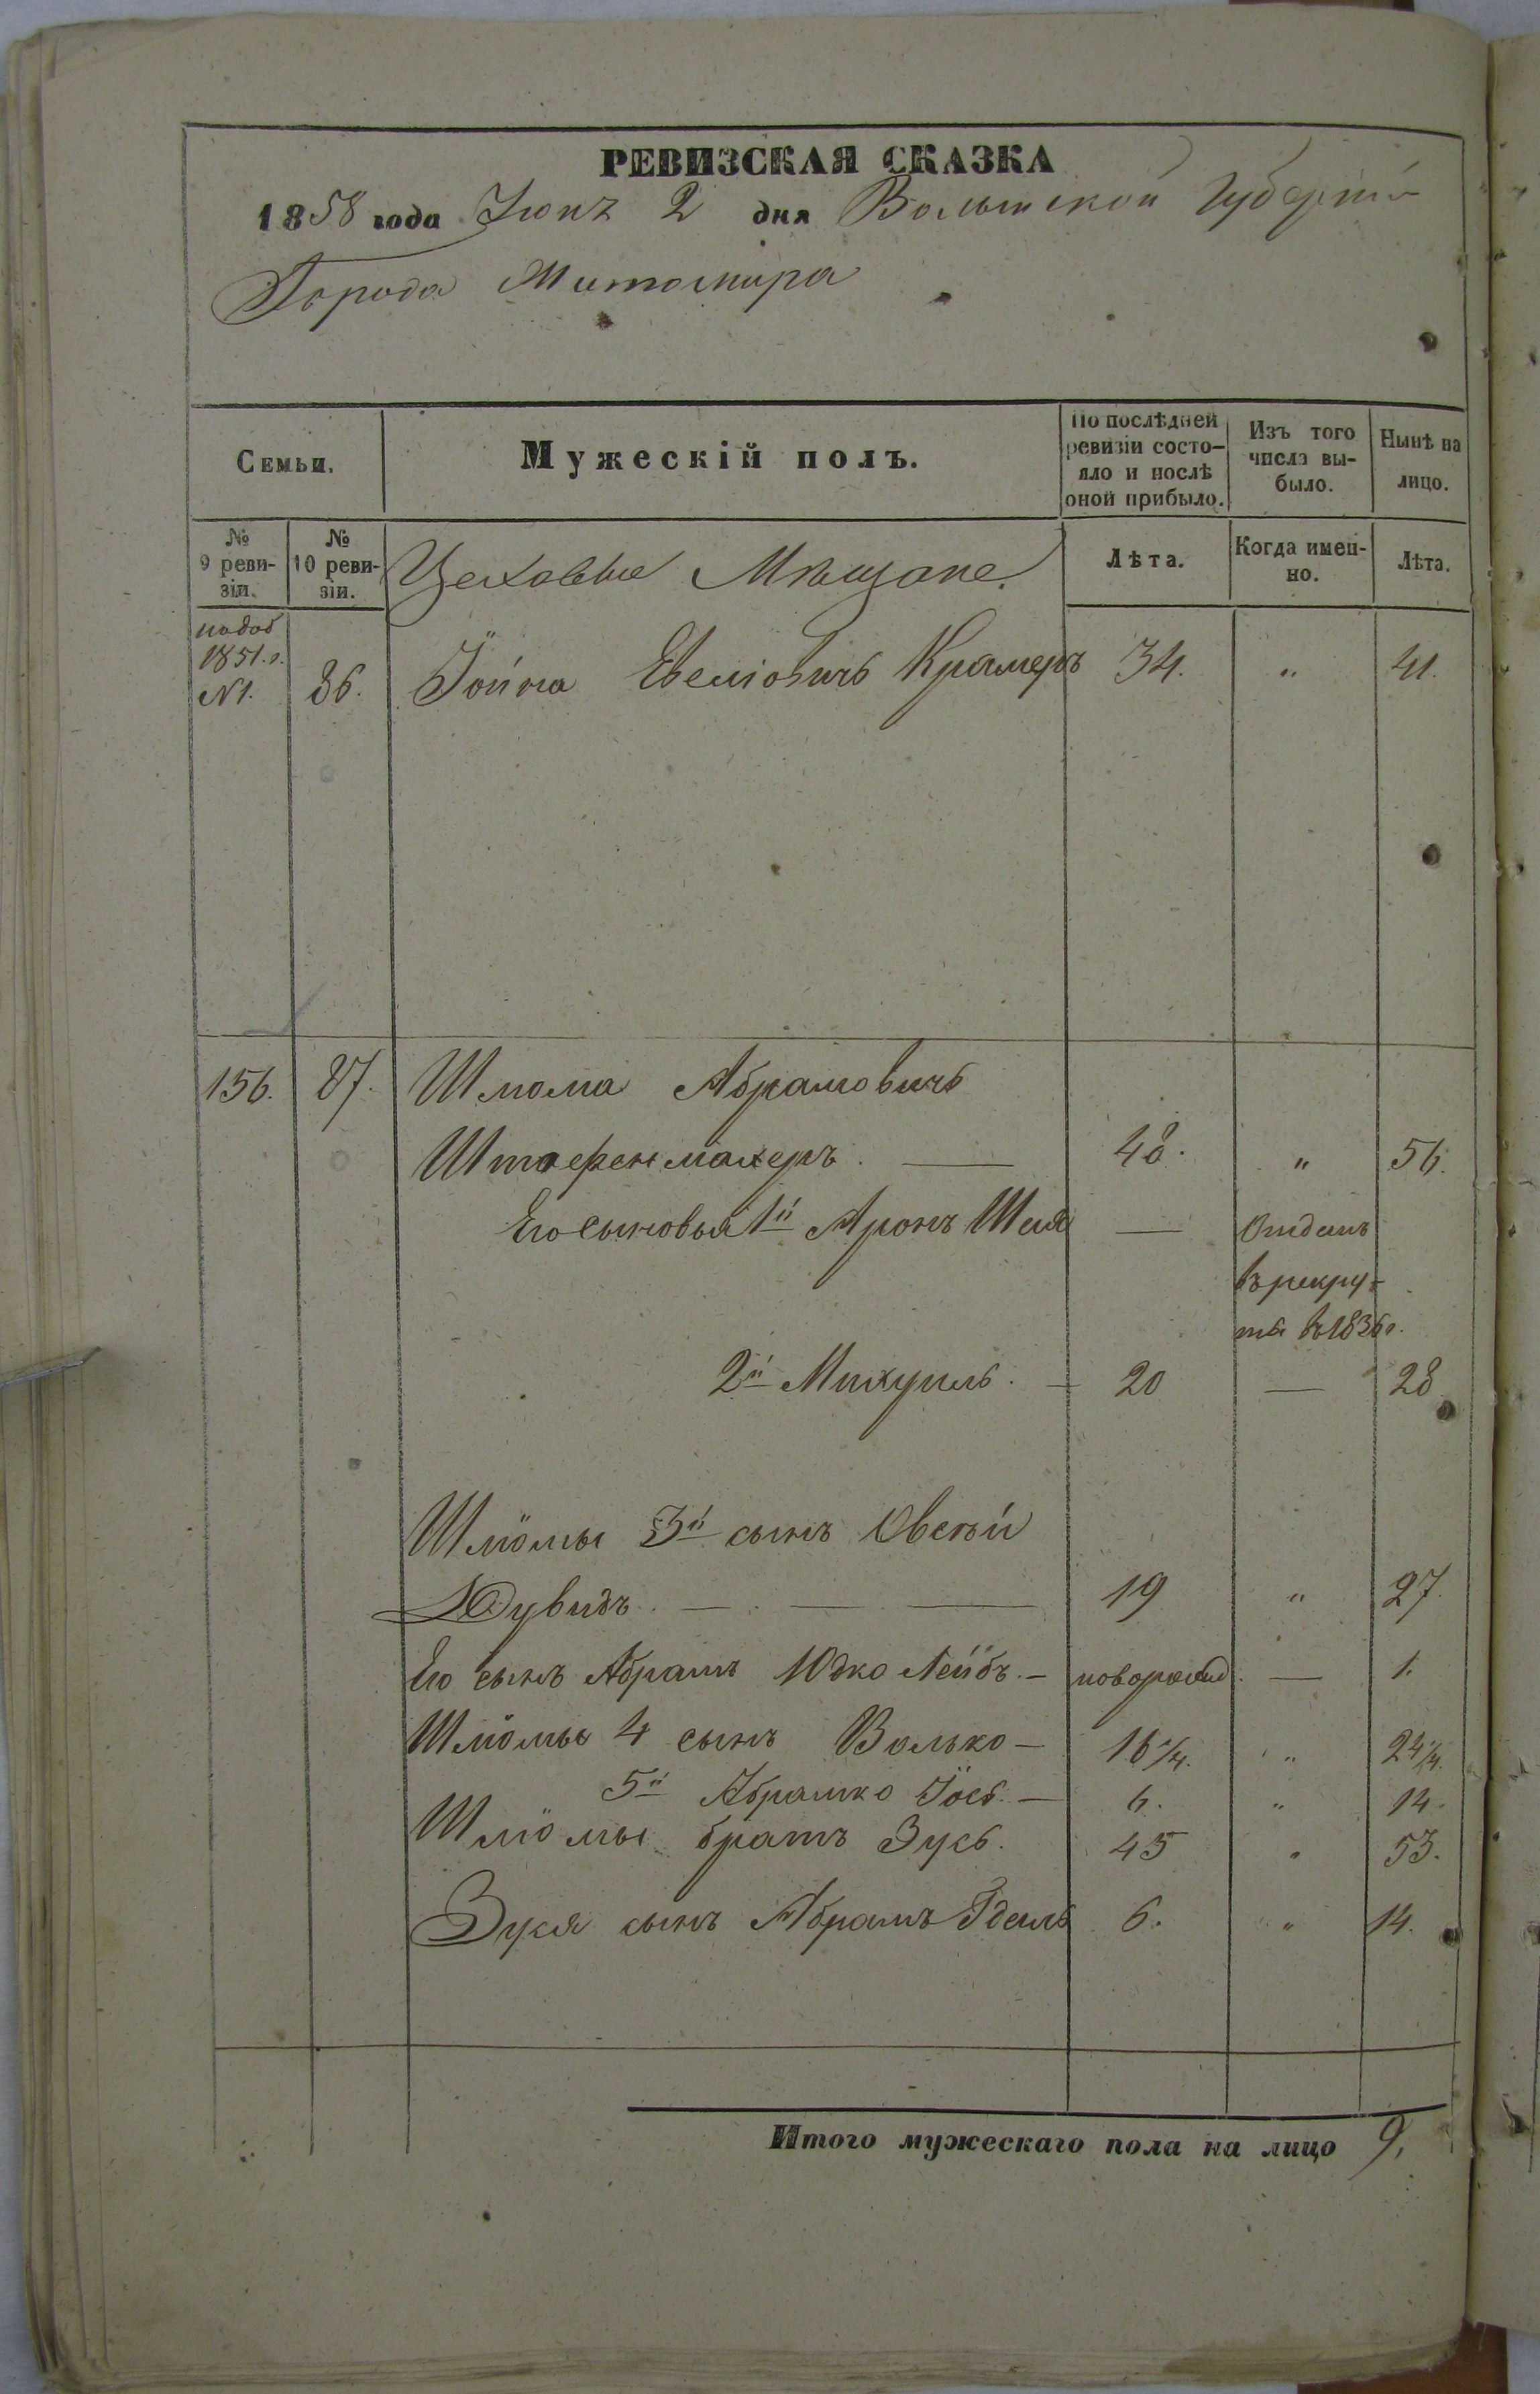 РЕВИЗСКАЯ СКАЗКА
1858 года Іюнь 2 дня Волынской Губерніи
Города Житомира
Семьи.
Мужескій полъ.
По послѣдней ревизіи состо-
яло и послѣ
оной прибыло.
Изъ того
числа вы-
было.
Нынѣ на
лицо.
№
9 реви-
зіи.
№
10 реви-
зіи.
Цеховые Мѣщане.
Лѣта.
Когда имен-
но.
Лѣта.
1851.г.
№1. 86. Іойна Евелiовичъ Крамеръ 34. " 41.
156. 87. Шлома Абрамовичъ
Штеренмахеръ. — 48. " 56.
Его сыновья 1й Аронъ Шая — Отданъ
въ рекру-
ты въ 1836г.
2й Михуиль. — 20 — 28
Шліомы 3й сынъ Овсѣй
Дувидъ. — — — 19 " 27.
Его сынъ Абрамъ Юдко Лейбъ. — новорожд. — 1.
Шліомы 4 сынъ Волько — 16 1/4. " 24 1/4.
5й Абрамко Іось. — 6. " 14.
Шліомы братъ Зусь. 45 " 53.
Зуся сынъ Абрамъ Идель 6. " 14.
Итого мужескаго пола на лицо 9,